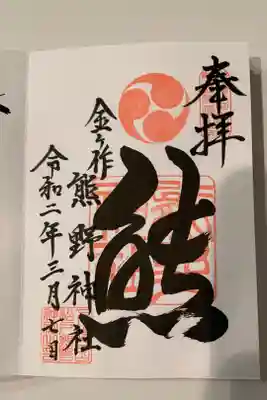 奉拝
熊
金ヶ作
熊野神社
令和二年三月七日